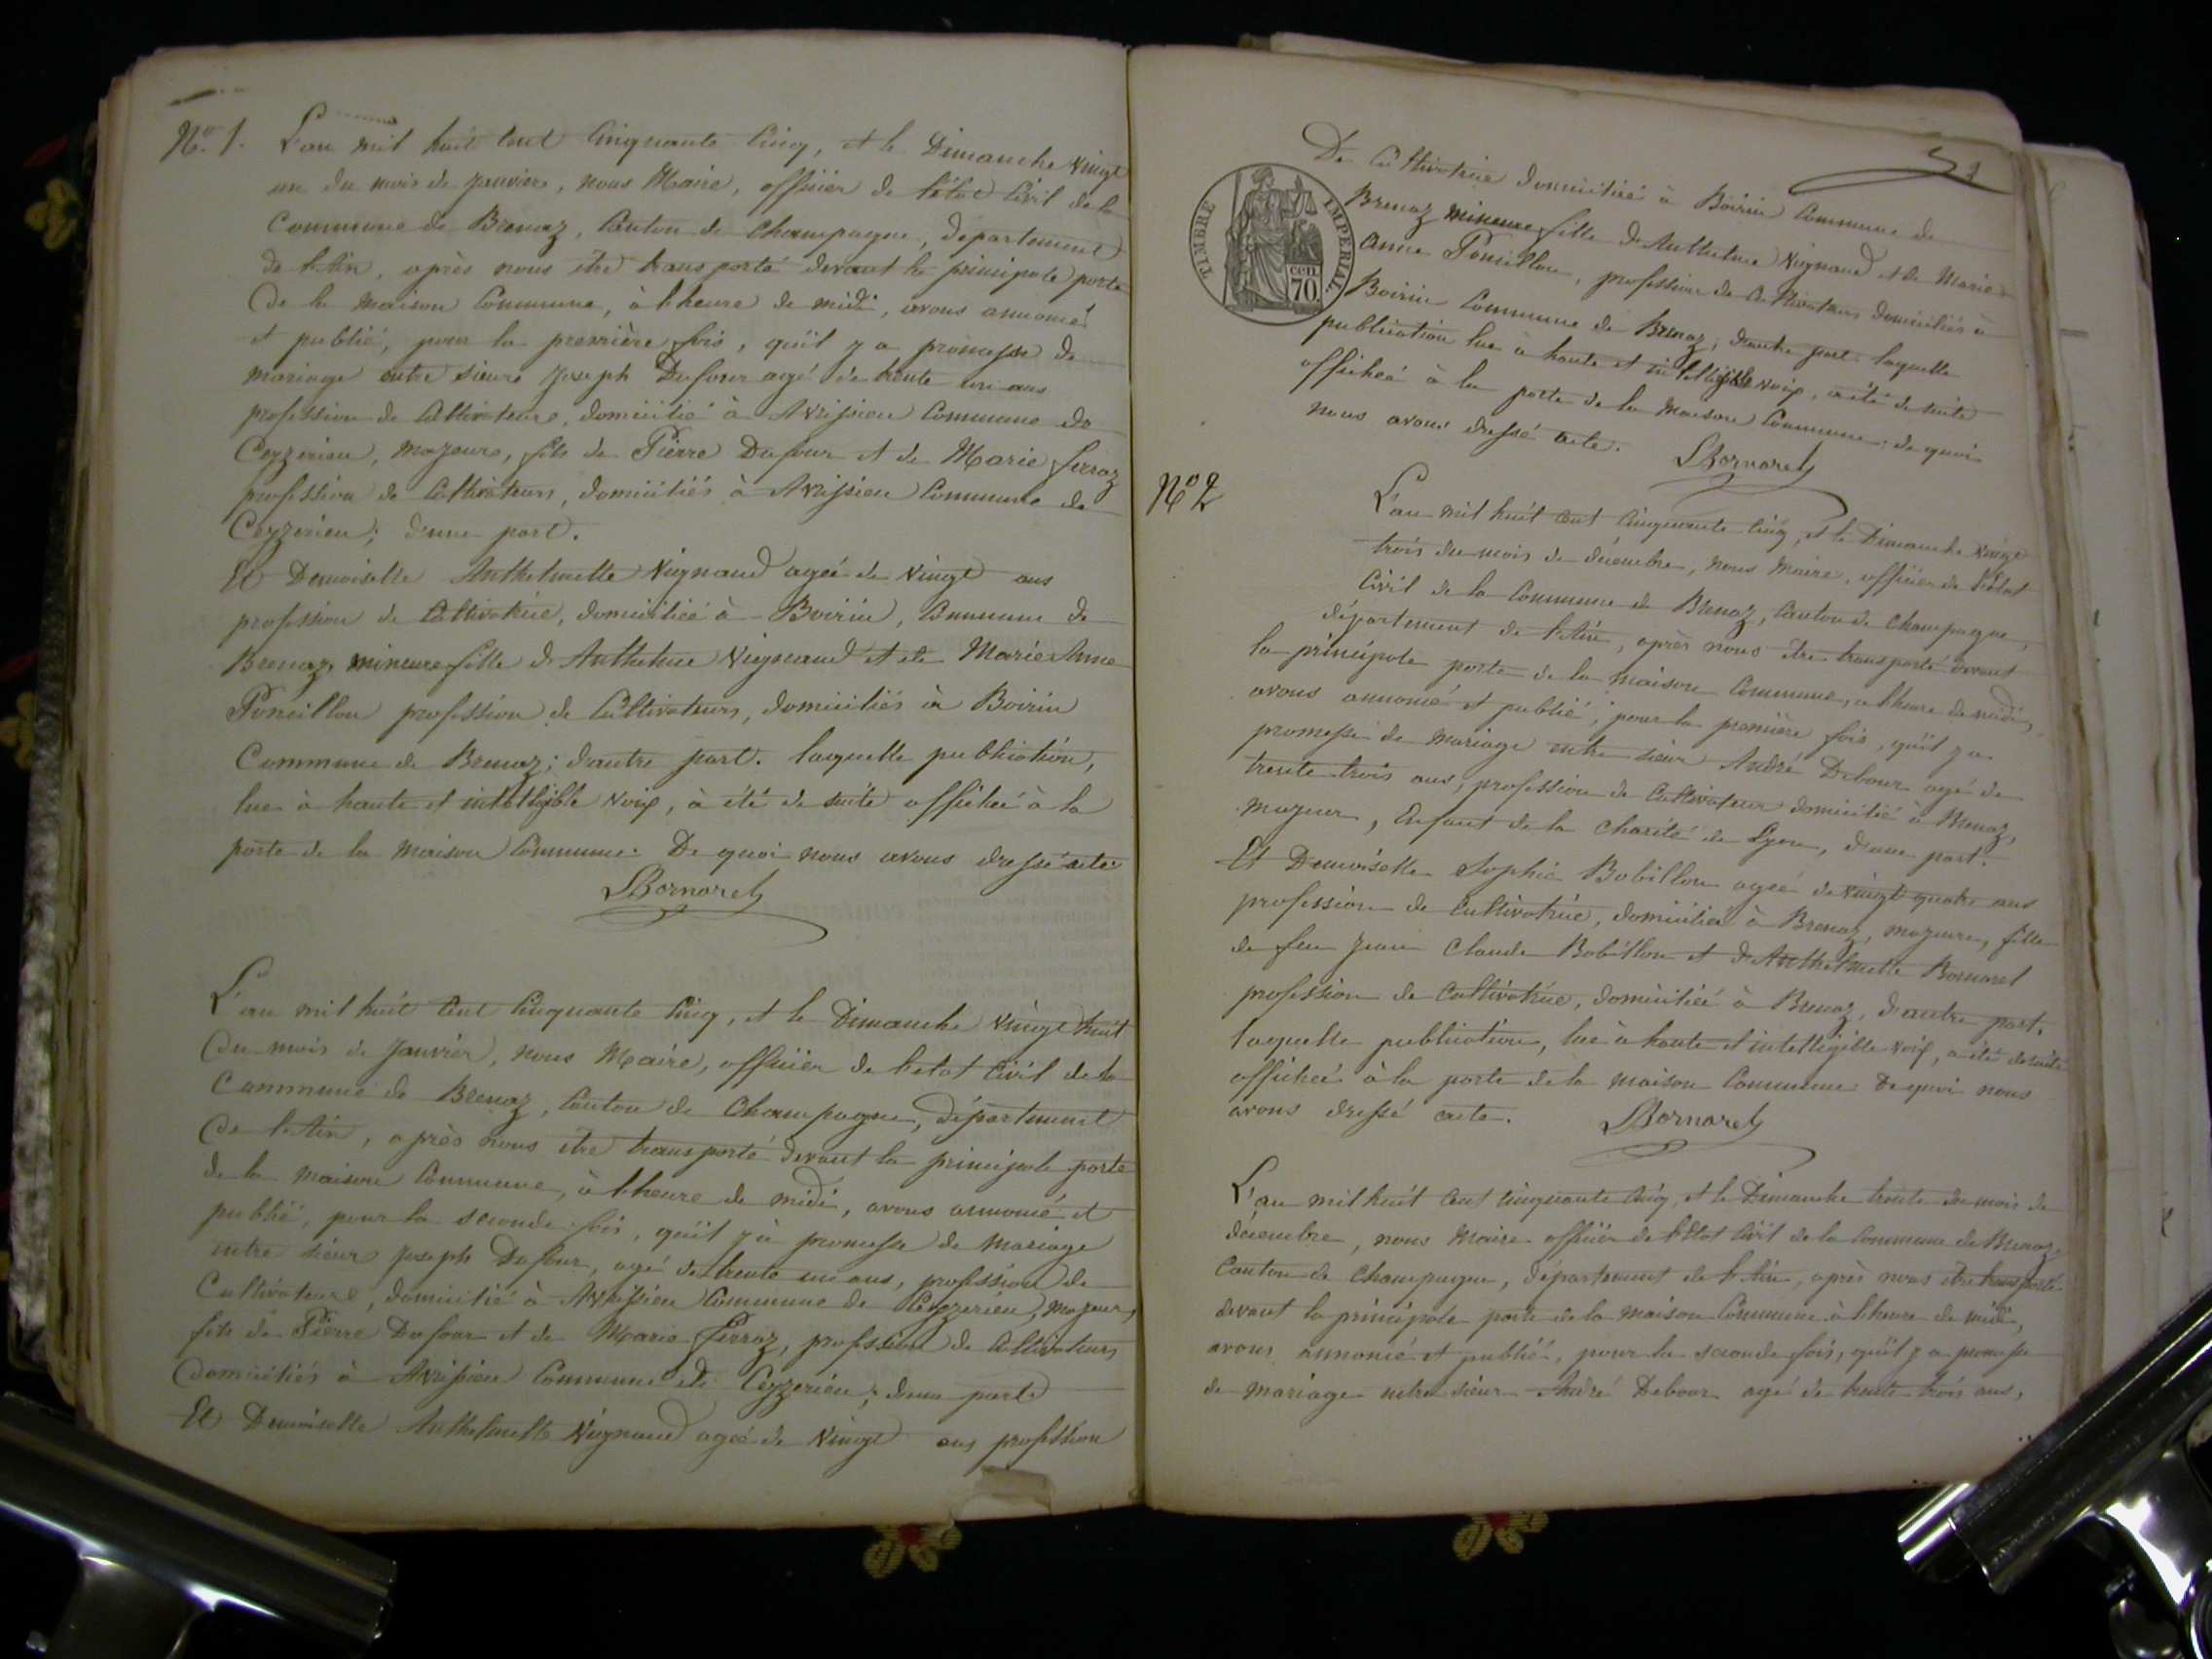 No. 1.
L'an mil huit cent Cinquante Cinq, et le Dimanche vingt
un du mois de Janvier, nous Maire, officier de l'état Civil de la
Commune de Brenaz, Canton de Champagne, département
de l'Ain, après nous être transporté devant la principale porte
de la maison Commune, à l'heure de midi, avons annoncé
et publié, pour la première fois, qu'il y a promesse de
mariage entre sieur Joseph Dufour agé de trente un ans
profession de Cultivateur, domicilié à Avrissieu Commune de
Ceyzerieu, majeur, fils de Pierre Dufour et de Marie ferraz
profession de Cultivateurs, domiciliés à Avrissieu Commune de
Ceyzerieu; d'une part.
Et Demoiselle Anthelmette Vuignaud agée de vingt ans
profession de Cultivatrice, domiciliée à Boirin, Commune de
Brenaz, mineure fille d'Anthelme Vuignaud et de Marie Anne
Poncillon profession de Cultivateurs, domiciliés à Boirin
Commune de Brenaz; d'autre part. laquelle publication,
lue à haute et intelligible voix, à été de suite affichée à la
porte de la maison Commune. De quoi nous avons dressé acte
LBornarel
L'an mil huit Cent Cinquante Cinq, et le Dimanche vingt huit
du mois de Janvier, nous Maire, officier de l'etat Civil de la
Commune de Brenaz, Canton de Champagne, département
de l'Ain, après nous être transporté devant la principale porte
de la maison Commune, à l'heure de midi, avons annoncé et
publié, pour la seconde fois, qu'il y à promesse de mariage
entre sieur Joseph Dufour, agé de trente un ans, profession de
Cultivateur, domicilié à Avrissieu Commune de Ceyzerieu, majeur,
fils de Pierre Dufour et de Marie ferraz, profession de Cultivateurs
domiciliés à Avrissieu Commune de Ceyzerieu; d'une part
Et Demoiselle Anthelmette Vuignaud agée de vingt ans profession
TIMBRE IMPERIAL
cen.
70.
De Cultivatrice domiciliée à Boirin Commune de
Brenaz mineure fille d'Anthelme Vuignaud et de Marie
anne Poncillon, profession de Cultivateurs domiciliés à
Boirin Commune de Brenaz, d'autre part. laquelle
publication lue à haute et intelligible voix, a été de suite
affichée à la porte de la maison Commune: de quoi
nous avons dressé acte.
LBornarel
No 2
L'an mil huit cent Cinquante Cinq, et le Dimanche vingt
trois du mois de décembre, nous Maire, officier de l'état
Civil de la Commune de Brenaz, Canton de Champagne,
département de l'Ain, après nous être transporté devant
la principale porte de la maison Commune, a l'heure de midi,
avons annoncé et publié, pour la première fois, qu'il y a
promesse de mariage entre sieur André Debour agé de
trente trois ans, profession de Cultivateur domicilié à Brenaz,
majeur, Enfant de la charité de Lyon, d'une part.
Et Demoiselle Sophie Bobillon agée de vingt quatre ans
profession de Cultivatrice, domiciliée à Brenaz, majeure, fille
de feu Jean Claude Bobillon et d'Anthelmette Bornarel
profession de Cultivatrice, domiciliée à Brenaz, d'autre part.
laquelle publication, lue à haute et intelligible voix, a été de suite
affichée à la porte de la maison Commune: De quoi nous
avons dressé acte.
LBornarel
L'an mil huit cent cinquante Cinq, et le Dimanche trente du mois de
décembre, nous Maire officier de l'Etat Civil de la Commune de Brenaz,
Canton de Champagne, département de l'Ain, après nous être transporté
devant la principale porte de la maison Commune à l'heure de midi,
avons annoncé et publié, pour la seconde fois, qu'il y a promesse
de mariage entre sieur André Debour agé de trente trois ans,